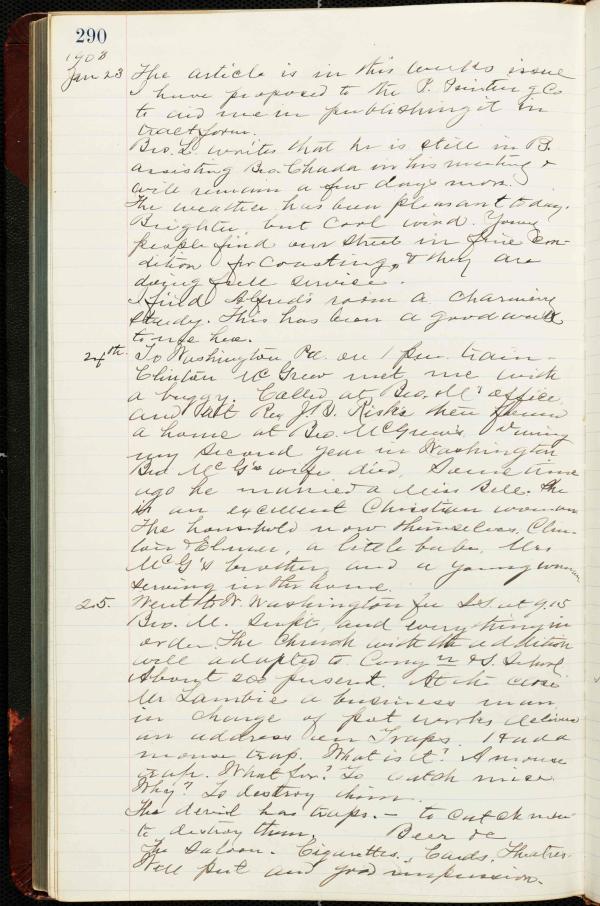 290
1908
Jan 23 The article is in this week's issue
I have proposed to the P. Printing Co
to aid me in publishing it in
tract form.
Bro. L writes that he is still in B.
assisting Bro. Chada in his meeting &
will remain a few days more.
The weather has been pleasant today.
Brighter but cool wind. Young
people find our street in fine con-
dition for coasting, & they are
doing full service.
I find Alfred's room a charming
study. This has been a good week
to me here.
24th. To Washington Pa. on 1 p.m. train -
Clinton McGrew met me with
a buggy. Called at Bro. M's office
and at Rev J. B. then found
a home at Bro. McGrew's. During
my second year in Washington
Bro McG's wife died. Some time
ago he married a Miss Bell. She
is an excellent Christian woman
The household now themselves, Clin-
ton & Elmer, a little babe, Mrs
McG's brother, and a young woman
serving in the home.
25. Went to W. Washington for S.S. at 9.15
Bro. M. Supt. and everything in
order. The Church with the addition
well adapted to Cong'n & S. School
About 200 present. At the close
Mr Lambie a business man,
in charge of pot works delivered
an address on Traps. Had a
mouse trap. What is it? A mouse
trap. What for? To catch mice
Why? To destroy them.
The devil has traps. - to catch men
to destroy them. Beer &c
The Saloon. Cigarettes, Cards, Theatres.
Well put and good impression.